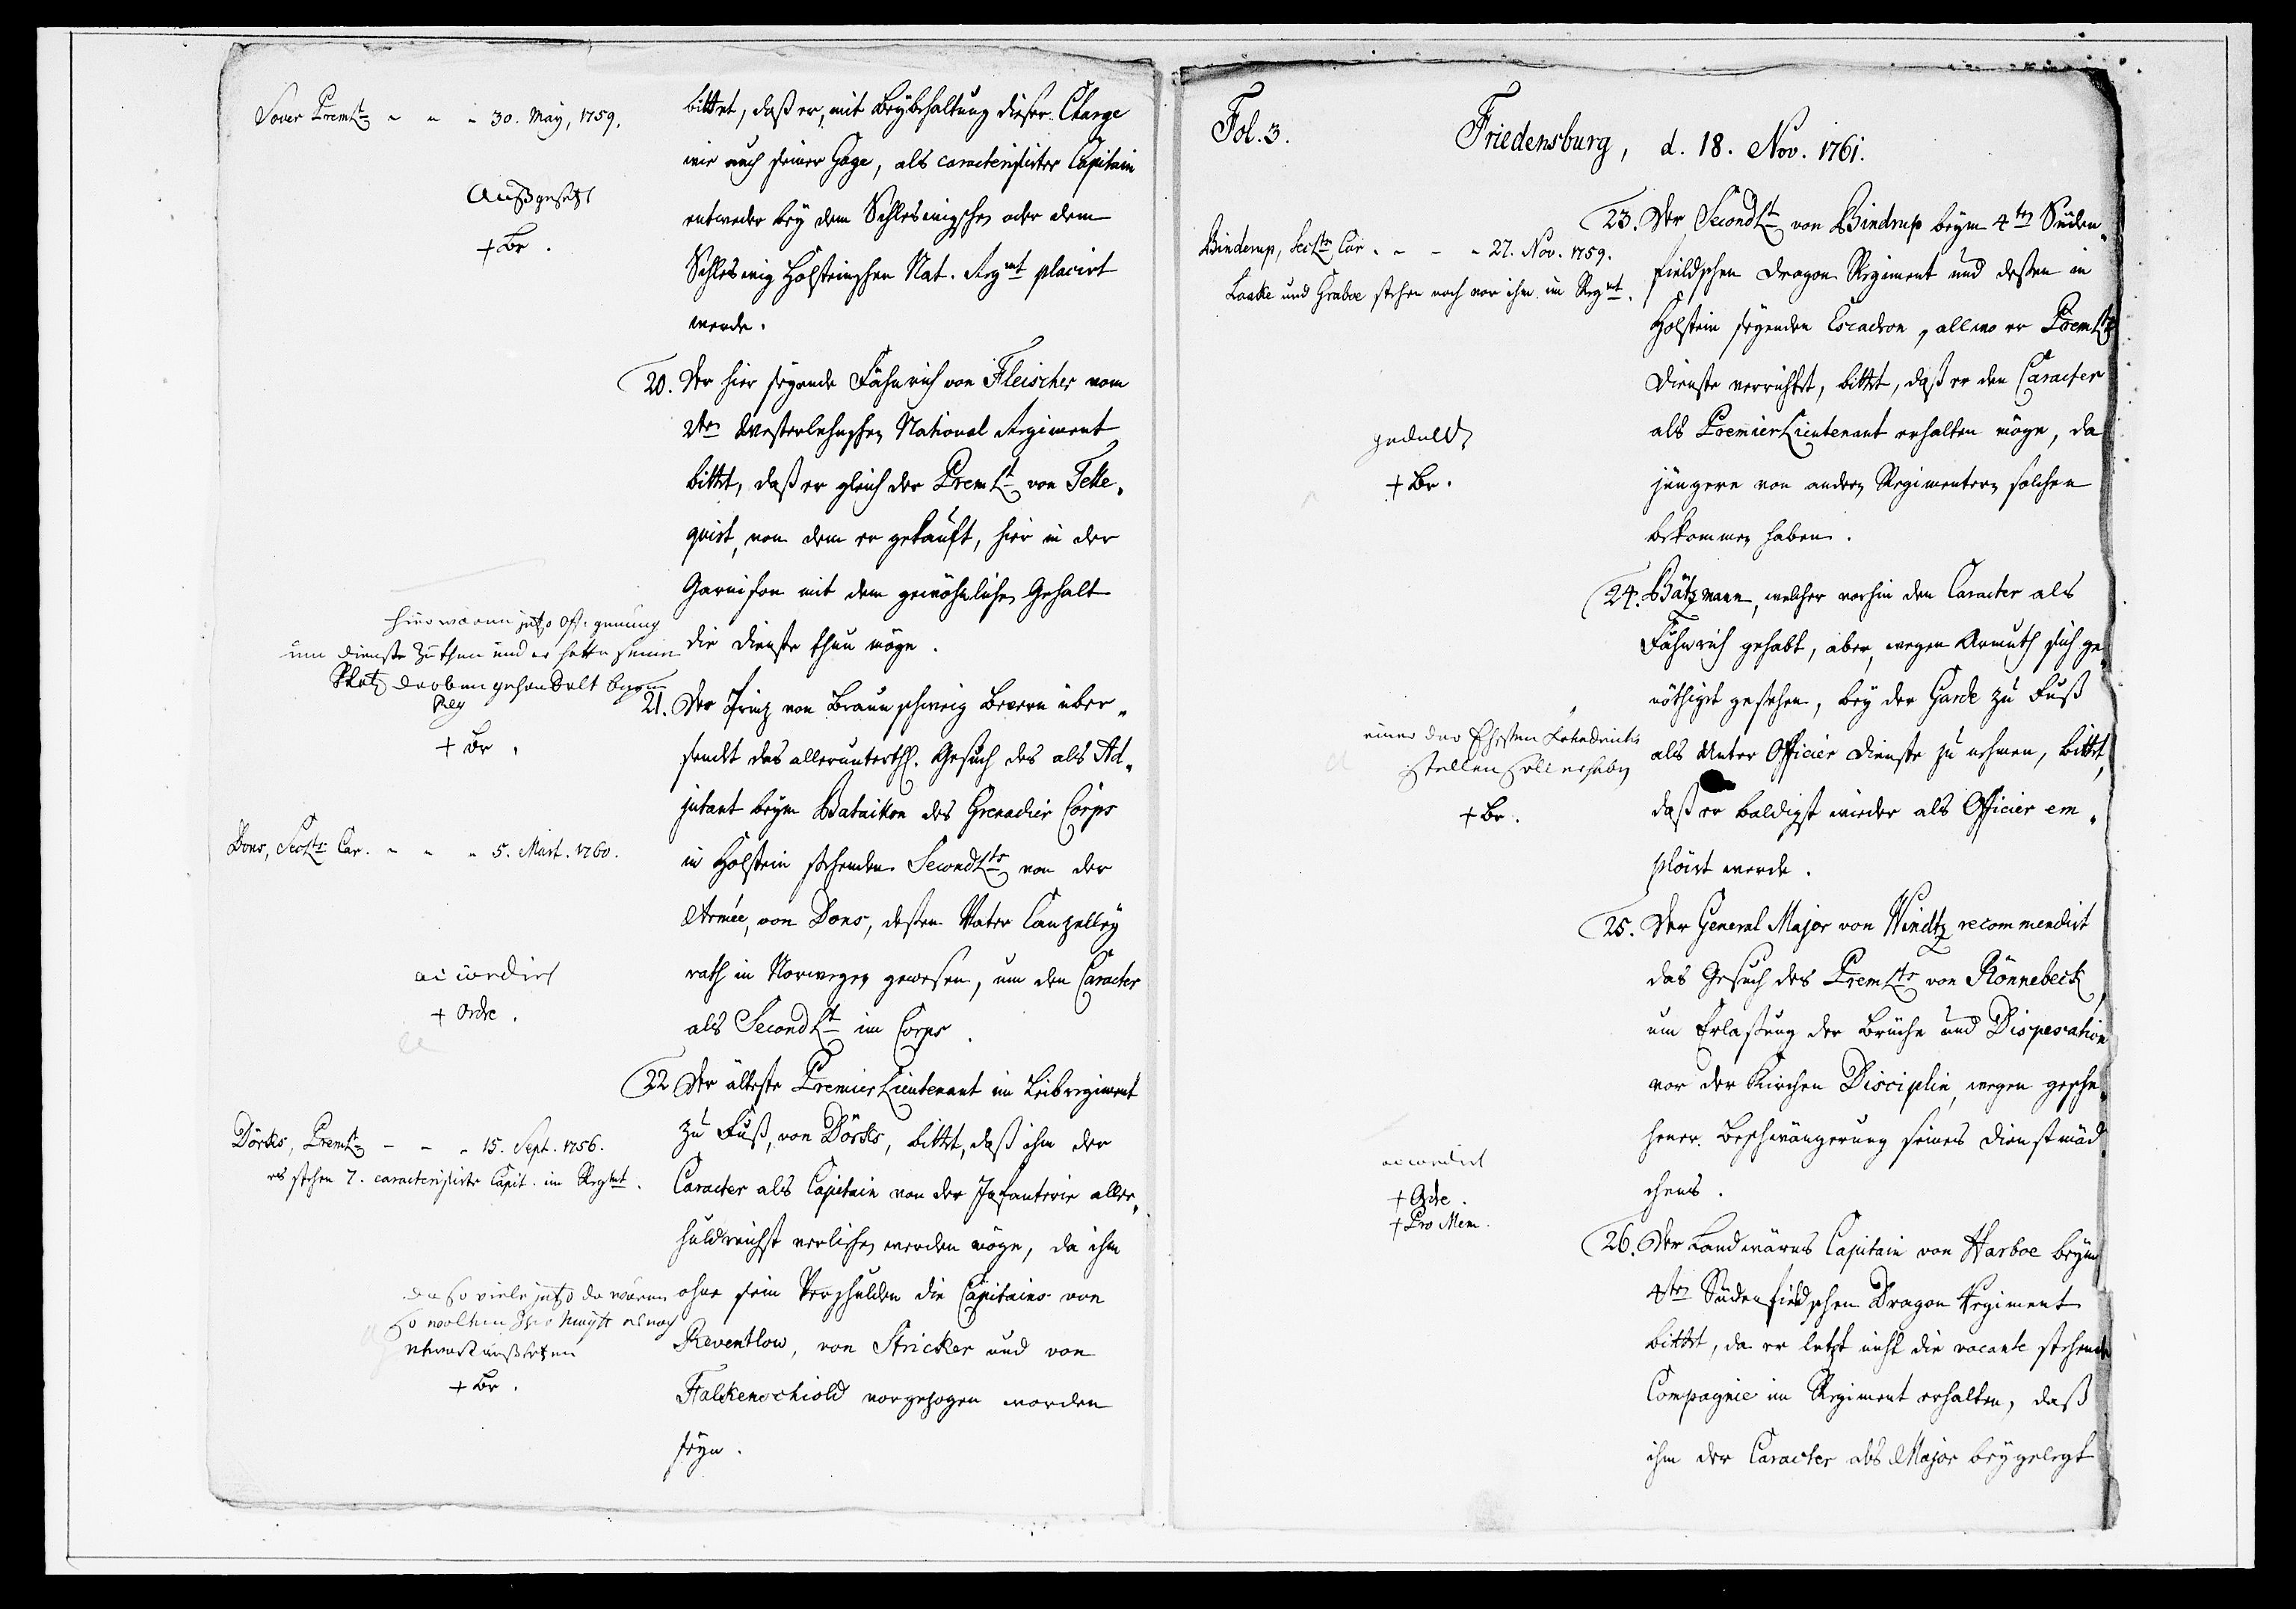 Sover PremLt - - - 30. May, 1759.
Außgesetzt
+ Br.
bittet, daß er, mit Beybehaltung dieser Charge
wie auch seiner Gage, als caracterisirter Capitain
entweder bey dem Schleswigschen oder dem
Schleswig Holsteinschen Nat. Regmt placirt
werde.
20. Der hier seyende Fähnrich von Fleischer vom
2ten Westerlehnschen National Regiment
bittet, daß er gleich der PremLt von Tette„
quist, von dem er getauscht, hier in der
Garnison mit dem gewöhnlichen Gehalt
die Dienste thun möge.
hier wären jetzo Off. genung
um Dienste zu thun und er hette seinen
Platz droben gehandelt beym
Reg
+ Br.
21. Der Prinz von Braunschweig Bevern über„
sendet das allerunterth. Gesuch des als Ad„
jutant beym Bataillon des Grenadier Corps
in Holstein stehenden SecondLts von der
Armée, von Dons, deßen Vater Canzelley
rath in Norwegen gewesen, um den Caracter
als SecondLt im Corps.
Dons, SecLts Car. - - - 5. Mart. 1760.
accordirt
+ Ordre.
22 Der älteste PremierLieutenant im Leibregiment
zu Fuß, von Dörks, bittet, daß ihm der
Caracter als Capitain von der Infanterie aller„
huldreichst verliehen werden möge, da ihm
ohne sein Verschulden die Capitains von
Reventlow, von Stricker und von
Falckenschiold vorgezogen worden
seyn.
Dörks, PremLt - - - 15. Sept. 1756.
es stehen 7. caracterisirte Capit. im Regmt.
da so viele jetzo da wären
so wolten Ihro Maytt es noch
etwas außsetzen
+ Br.
Fol. 3.
Friedensburg, d. 18. Nov. 1761.
23. Der SecondLt von Bindrup beym 4ten Süden„
fieldschen Dragon Regiment und deßen in
Holstein seyenden Escadron, allwo er PremLts
Dienste verrichtet, bittet, daß er den Caracter
als PremierLieutenant erhalten möge, da
jüngere von andern Regimentern solchen
bekommen haben.
Binderup, SecLts Car. - - - 27. Nov. 1759.
Laake und Graboe stehen noch vor ihm im Regmt.
geduldt
+ Br.
24. Bätzmann, welcher vorhin den Caracter als
Fähnrich gehabt, aber, wegen Armuth sich ge
nöthiget gesehen, bey der Garde zu Fuß
als Unter Officier Dienste zu nehmen, bittet,
daß er baldigst wieder als Officier em„
ploirt werde.
einer der Ehrsten
stellen soll er haben
+ Br.
25. Der General Major von Windtz recommendirt
das Gesuch des PremLts von Rönnebeck
um Erlaßung der Brüche und Dispesation
vor der Kirchen Disciplin, wegen gesche„
hener Beschwängerung seines Dienstmäd
chens.
accordirt
+ Ordre.
+ Pro Mem.
26. Der Landwärns Capitain von Harboe beym
4ten Südenfieldschen Dragon Regiment
bittet, da er letzt nicht die vacante stehende
Compagnie im Regiment erhalten, daß
ihm der Caracter als Major beygelegt